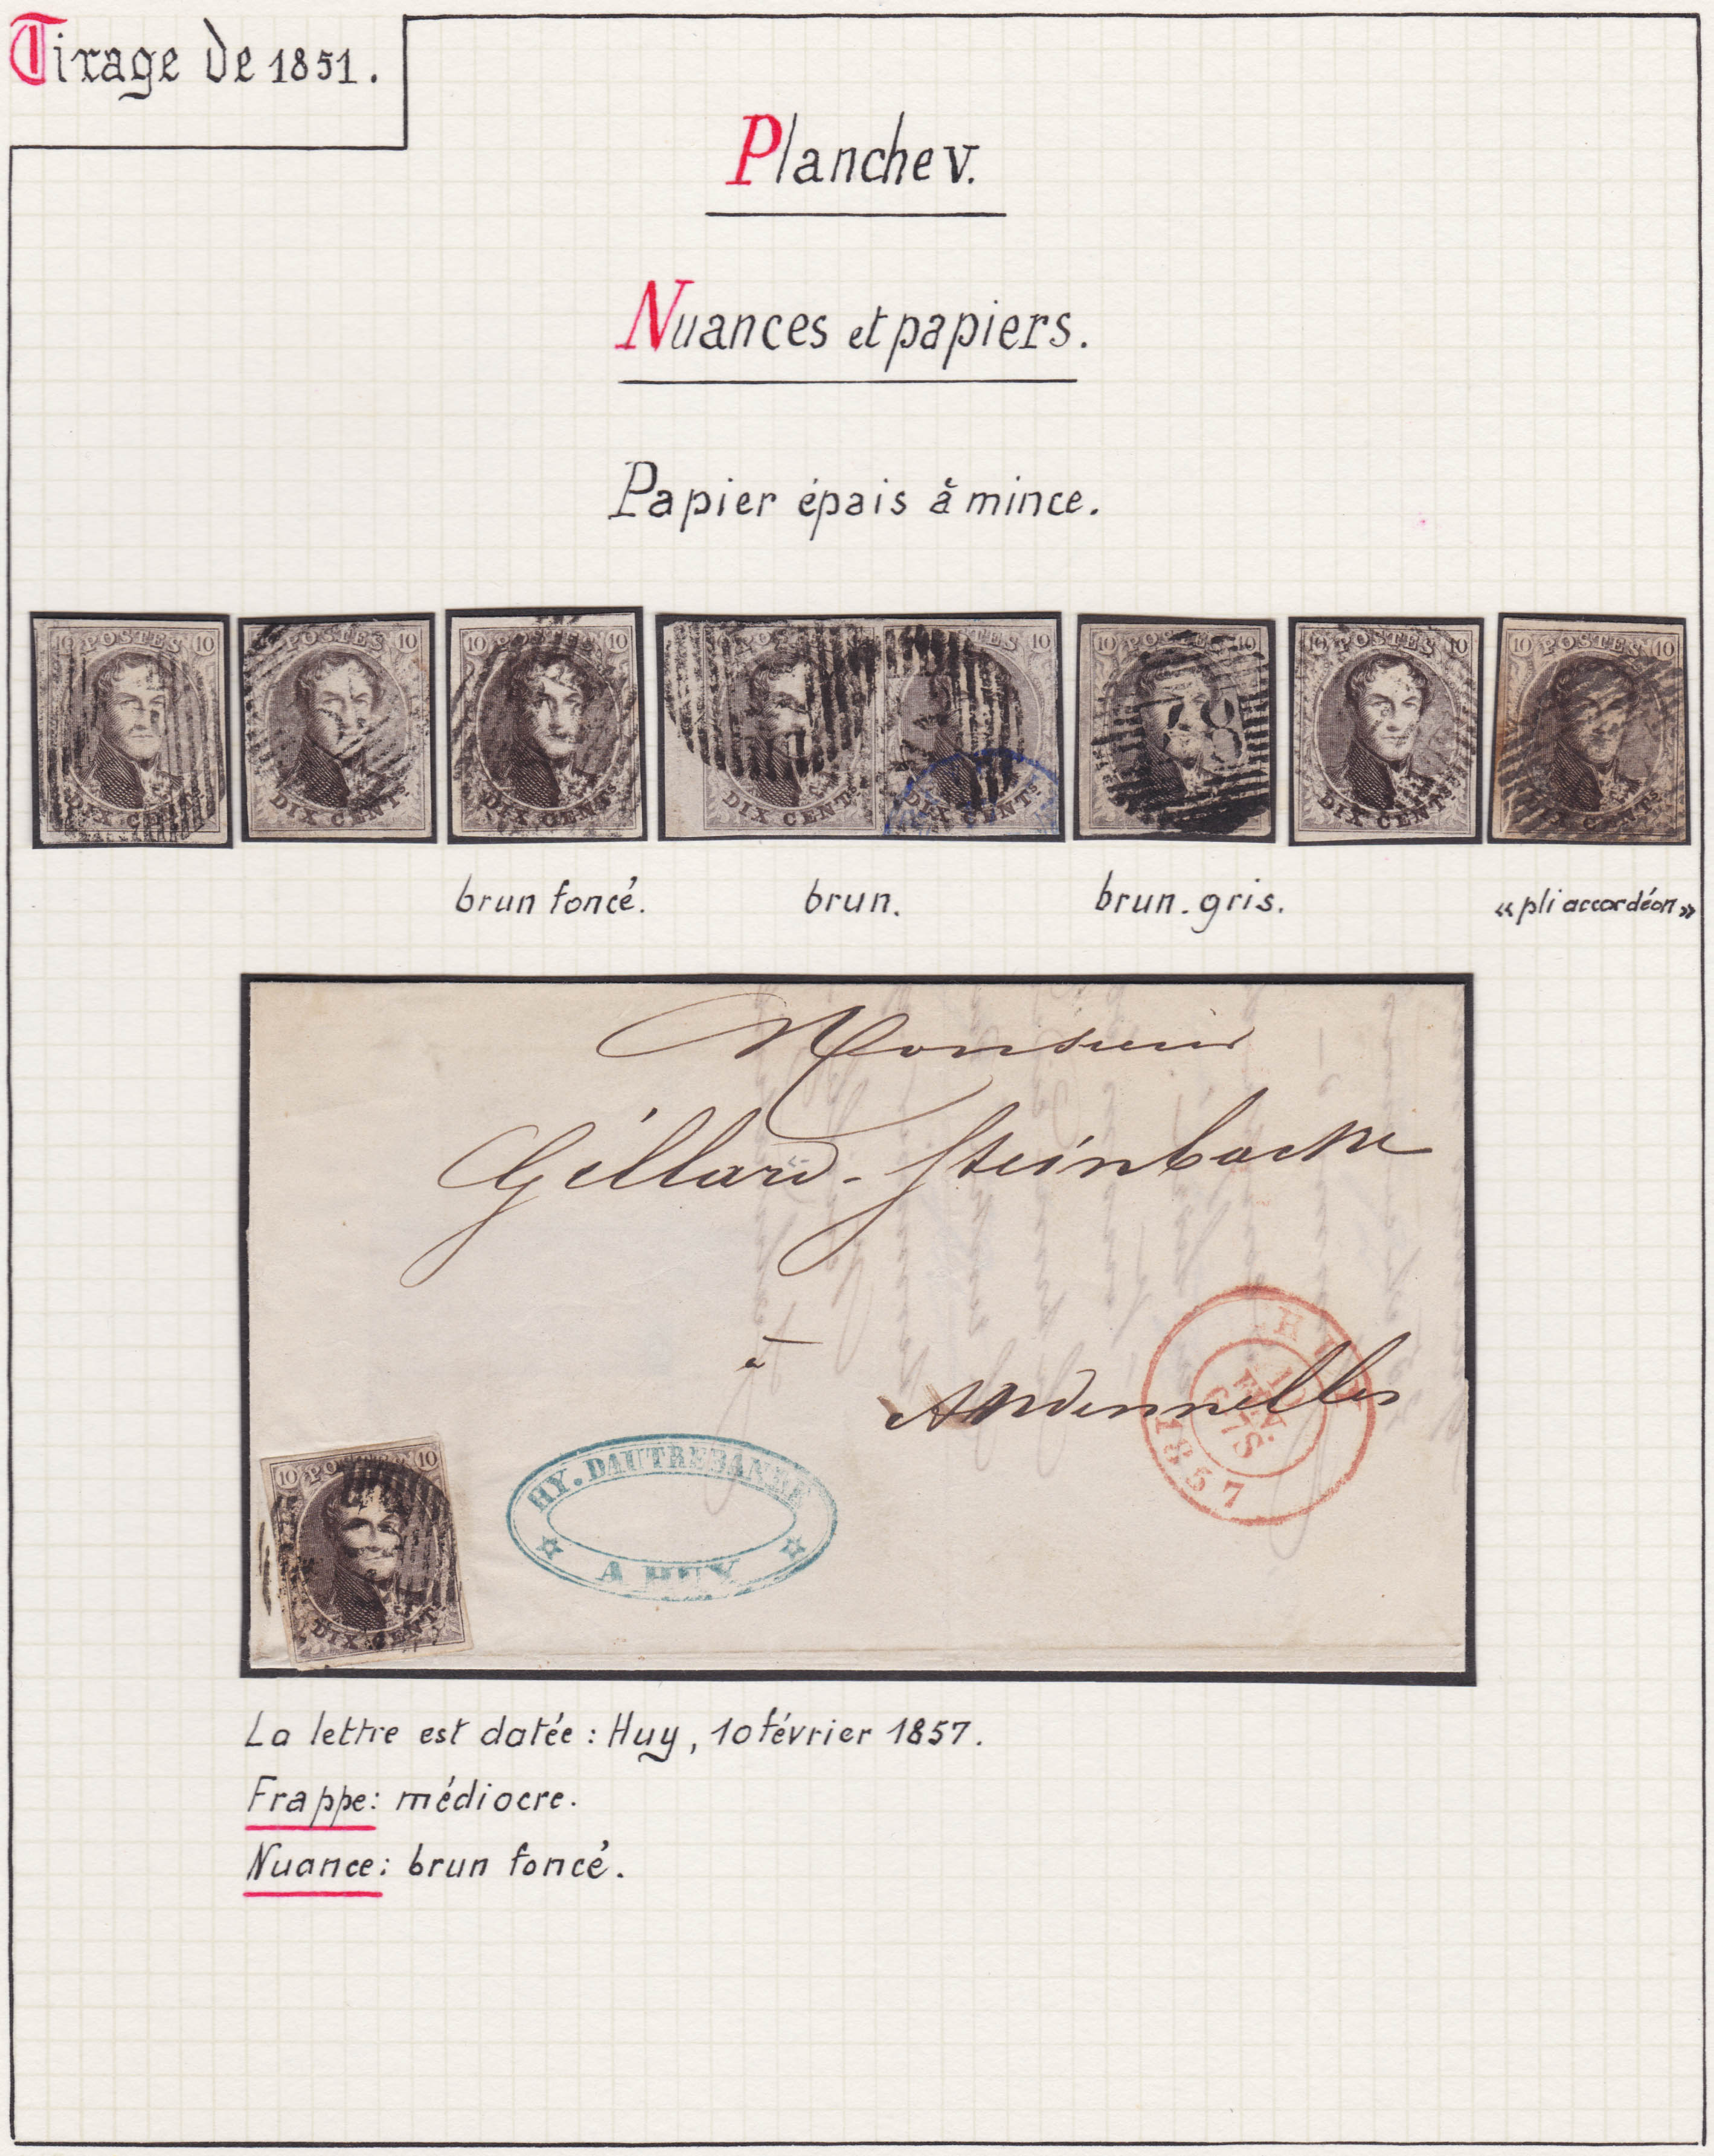 Tirage de 1851.
Planche V.
Nuances et papiers.
Papier épais à mince.
10 POSTES 10
DIX CENTs
POSTES 10
DIX CENTs
10 10
DIX CENTs
POSTES
DIX CENTs
10
DIX CENTs
10 POSTES 10
10 POSTES 10
DIX CENTs
10 POSTES 10
brun foncé.
brun.
brun. gris.
«pli accordéon»
Monsieur
Gillard-Steinbach
à
Andennelles
HUY
10
FEV.
1857
HY. DAUTREBANDE
A HUY
10 POSTES 10
DIX CENTs
La lettre est datée : Huy, 10 février 1857.
Frappe: médiocre.
Nuance: brun foncé.